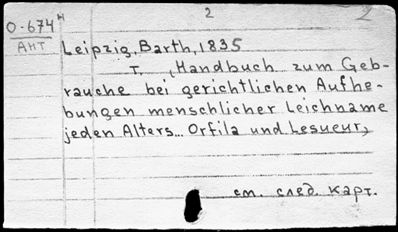 2 2
О-674 н
АНТ
Leipzig, Barth, 1835
т. , Handbuch zum Geb-
rauche bei gerichtlichen Aufhe-
bungen menschlicher Leichname
jeden Alters... Orfila und Lesueur,
см. след. карт.